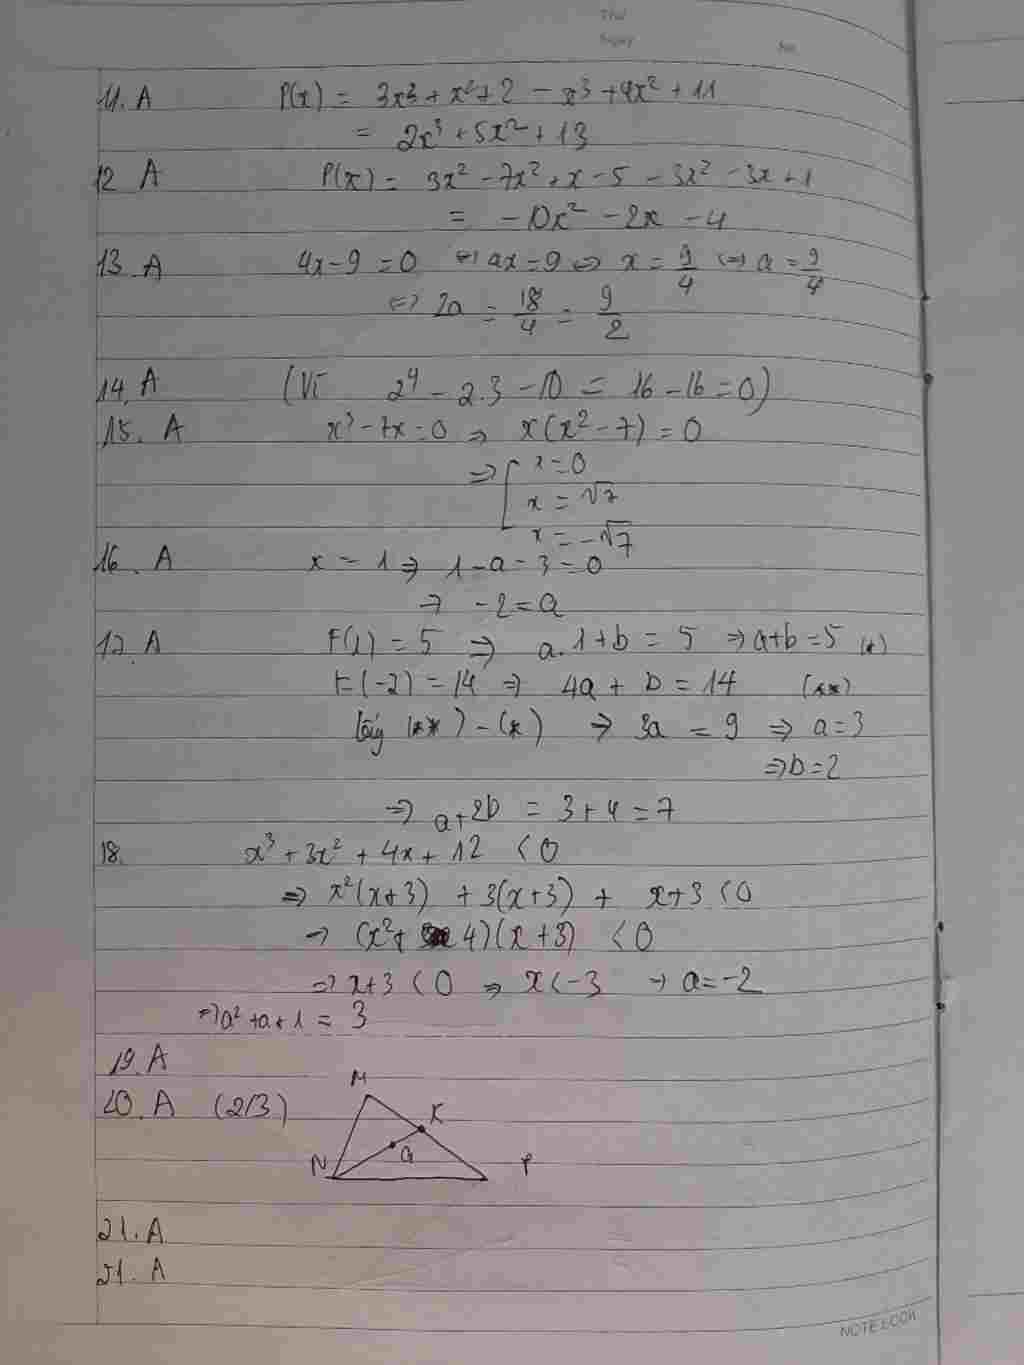 Thứ
Ngày
No.
11. A P(x) = 3x³ + x² + 2 - x³ + 4x² + 11
= 2x³ + 5x² + 13
12 A P(x) = 3x² - 7x² + x - 5 - 3x² - 3x + 1
= -10x² - 2x - 4
13. A 4x - 9 = 0 ⇔ 4x = 9 ⇔ x = 9/4 ⇔ a = 9/4
⇔ 2a = 18/4 = 9/2
14. A (Vì 2⁴ - 2.3 - 10 = 16 - 16 = 0)
15. A x³ - 7x = 0 ⇒ x(x² - 7) = 0
⇒ [ x = 0
x = √7
x = -√7
16. A x = 1 ⇒ 1 - a - 3 = 0
⇒ -2 = a
17. A F(1) = 5 ⇒ a.1 + b = 5 ⇒ a+b = 5 (*)
F(-2) = 14 ⇒ 4a + b = 14 (**)
lấy (**) - (*) ⇒ 3a = 9 ⇒ a = 3
⇒ b = 2
⇒ a + 2b = 3 + 4 = 7
18. x³ + 3x² + 4x + 12 < 0
⇒ x²(x+3) + 3(x+3) + x+3 < 0
⇒ (x² + 4)(x + 3) < 0
⇒ x+3 < 0 ⇒ x < -3 ⇒ a = -2
⇒ a² + a + 1 = 3
19. A
20. A (2/3)
M
K
G
N P
21. A
21. A
NOTEBOOK